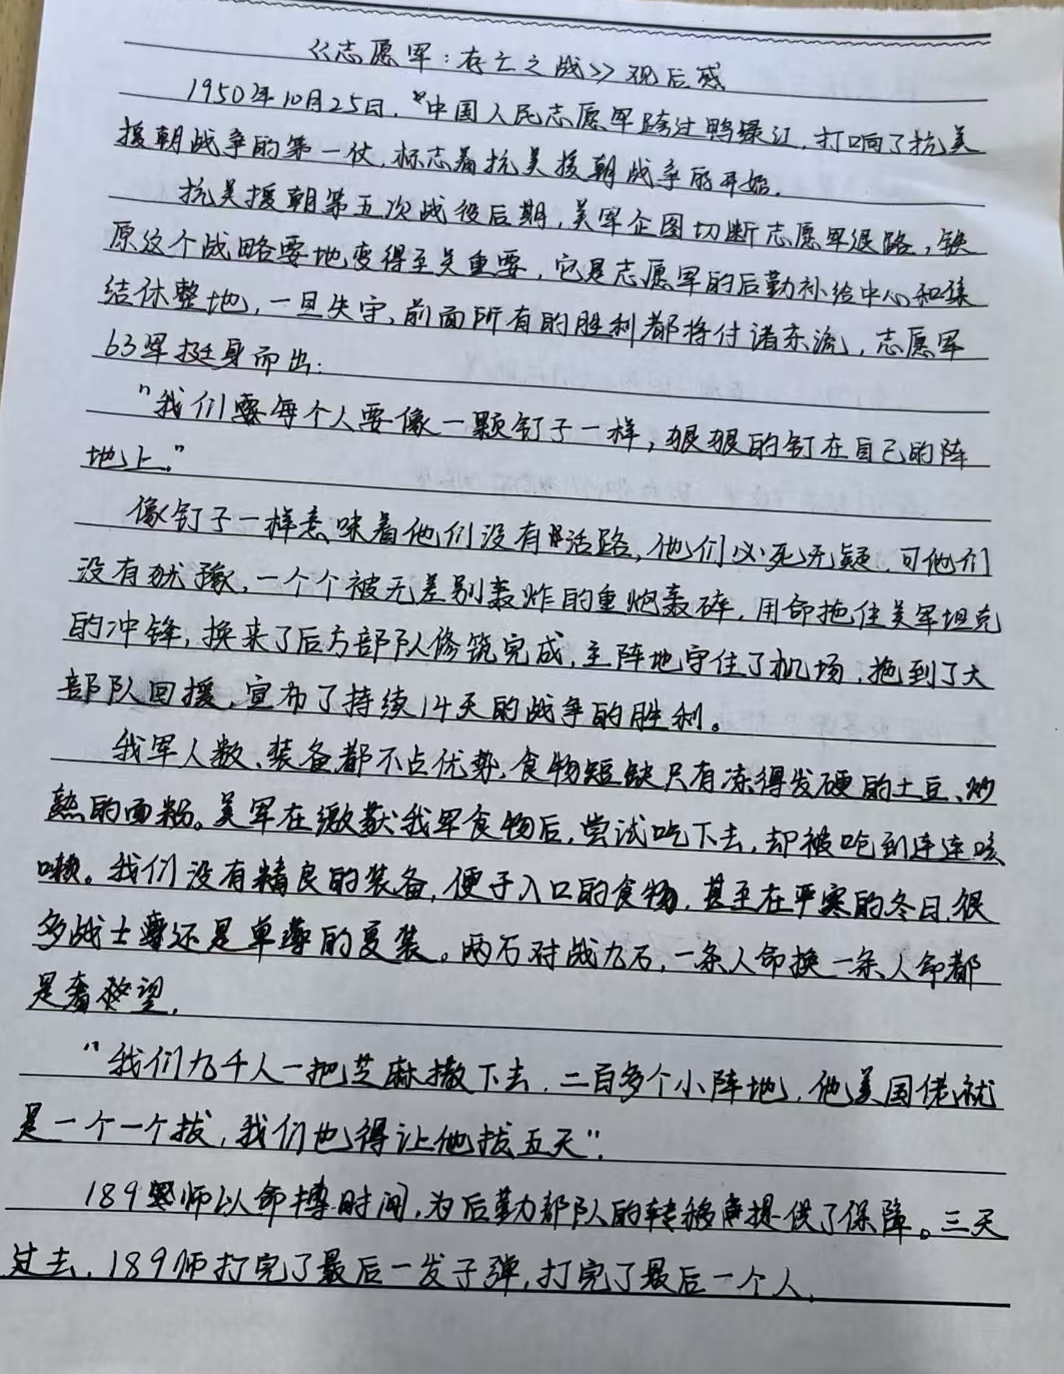 《志愿军：存亡之战》观后感
1950年10月25日，中国人民志愿军跨过鸭绿江，打响了抗美
援朝战争的第一仗，标志着抗美援朝战争的开始．
抗美援朝第五次战役后期，美军企图切断志愿军退路，铁
原这个战略要地变得至关重要，它是志愿军的后勤补给中心和集
结休整地，一旦失守，前面所有的胜利都将付诸东流，志愿军
63军挺身而出：
"我们要每个人要像一颗钉子一样，狠狠的钉在自己的阵
地上。"
像钉子一样意味着他们没有活路，他们必死无疑，可他们
没有犹豫，一个个被无差别轰炸的重炮轰碎，用命拖住美军坦克
的冲锋，换来了后方部队修筑完成，主阵地守住了机场，拖到了大
部队回援，宣布了持续14天的战争的胜利。
我军人数、装备都不占优势，食物短缺只有冻得发硬的土豆、炒
熟的面粉。美军在缴获我军食物后，尝试吃下去，却被呛到连连咳
嗽。我们没有精良的装备，便于入口的食物，甚至在严寒的冬日，很
多战士还是单薄的夏装。两石对战九石，一条人命换一条人命都
是奢望．
"我们九千人一把芝麻撒下去，二百多个小阵地，他美国佬就
是一个一个拔，我们也得让他拔五天"．
189师以命搏时间，为后勤部队的转移提供了保障。三天
过去，189师打完了最后一发子弹，打完了最后一个人，